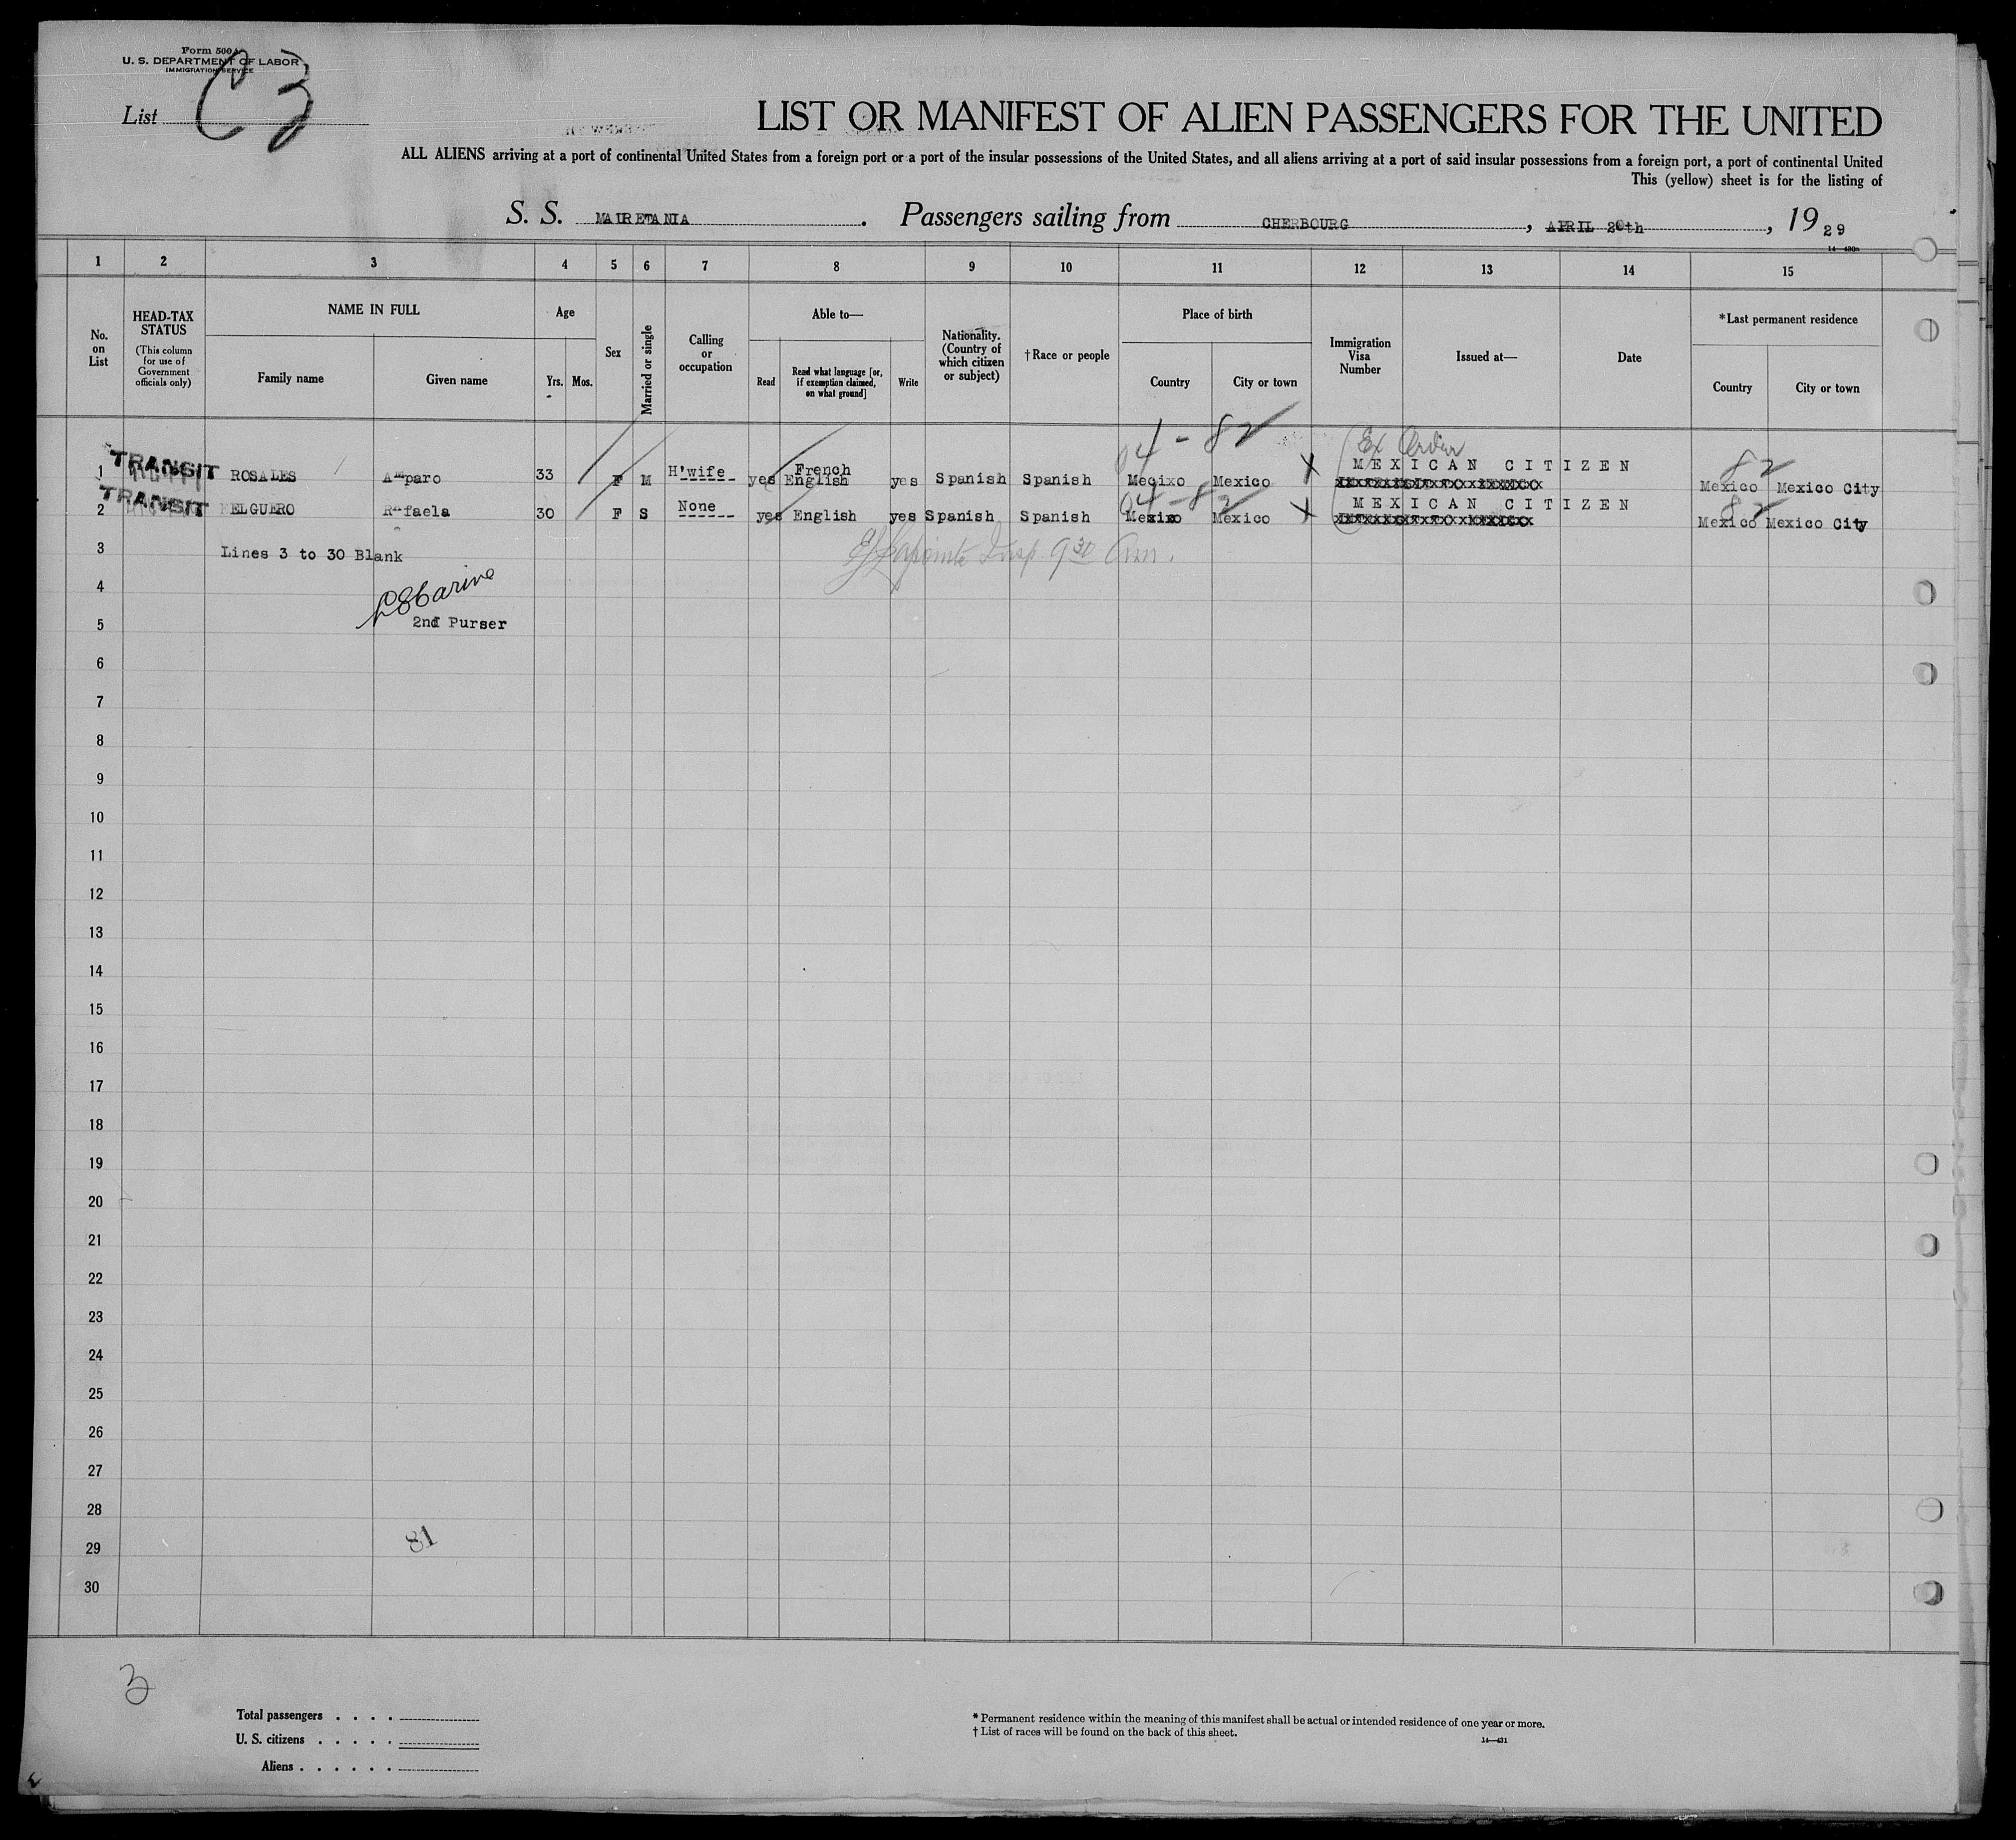 Form 500A
U. S. DEPARTMENT OF LABOR
IMMIGRATION SERVICE
List C 3
LIST OR MANIFEST OF ALIEN PASSENGERS FOR THE UNITED
ALL ALIENS arriving at a port of continental United States from a foreign port or a port of the insular possessions of the United States, and all aliens arriving at a port of said insular possessions from a foreign port, a port of continental United
This (yellow) sheet is for the listing of
S. S. MAURETANIA. Passengers sailing from CHERBOURG, APRIL 20th, 19 29
14—430a
1 2 3 4 5 6 7 8 9 10 11 12 13 14 15
No. on List
HEAD-TAX STATUS (This column for use of Government officials only)
NAME IN FULL
Family name
Given name
Age
Yrs. Mos.
Sex
Married or single
Calling or occupation
Able to—
Read
Read what language [or, if exemption claimed, on what ground]
Write
Nationality. (Country of which citizen or subject)
†Race or people
Place of birth
Country
City or town
Immigration Visa Number
Issued at—
Date
*Last permanent residence
Country
City or town
04 - 82
Ex Order
82
1 TRANSIT ROSALES Amparo 33 F M H'wife yes French English yes Spanish Spanish Megixo Mexico X MEXICAN CITIZEN Mexico Mexico City
04 - 82
82
2 TRANSIT ELGUERO Rafaela 30 F S None yes English yes Spanish Spanish Mexixo Mexico X MEXICAN CITIZEN Mexico Mexico City
3 Lines 3 to 30 Blank
Insp. 9 30 Am.
4
5 2nd Purser
6
7
8
9
10
11
12
13
14
15
16
17
18
19
20
21
22
23
24
25
26
27
28
29 81
30
3
Total passengers . . . .
U. S. citizens . . . . .
Aliens . . . . . .
* Permanent residence within the meaning of this manifest shall be actual or intended residence of one year or more.
† List of races will be found on the back of this sheet.
14—431